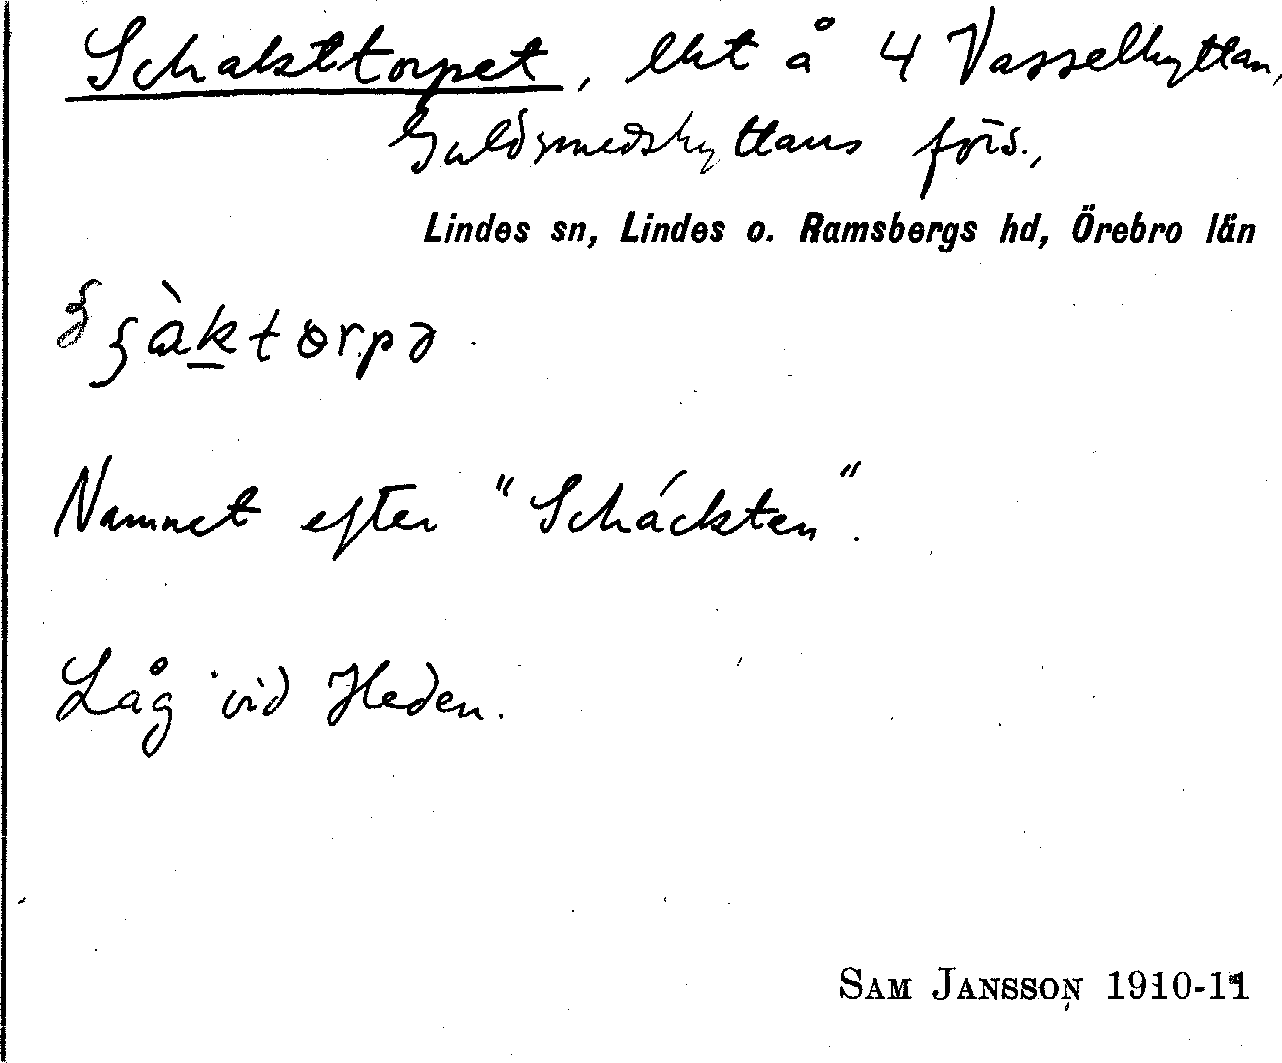 Schakttorpet, lht å 4 Vasselhyttan,
Guldsmedshyttans förs.,
Lindes sn, Lindes o. Ramsbergs hd, Örebro län
Namnet efter "Schäckten".
Låg vid Heden.
SAM JANSSON 1910-11